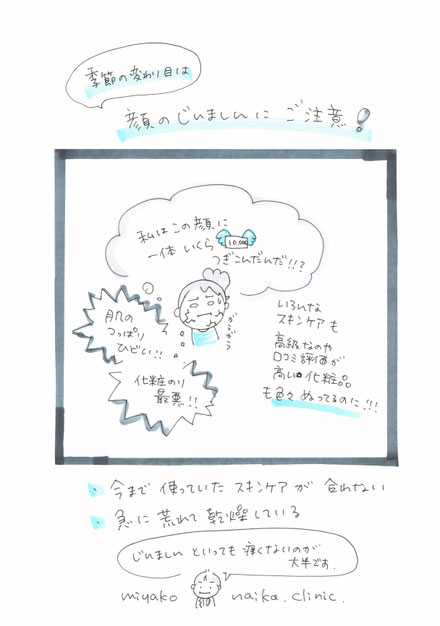 季節の変わり目は
顔のじんましんに ご注意!
私はこの顔に
一体 いくら 10,000
つぎこんだんだ!!?
肌の
つっぱり
ひどい!!
化粧のり
最悪!!
がさがさ
いろんな
スキンケアも
高級なのや
口コミ評価が
高い化粧品
も色々 ぬってるのに!!!
今まで 使っていた スキンケアが 合わない
急に 荒れて 乾燥している
じんましん といっても 痒くないのが
大半です.
miyako naika.clinic.